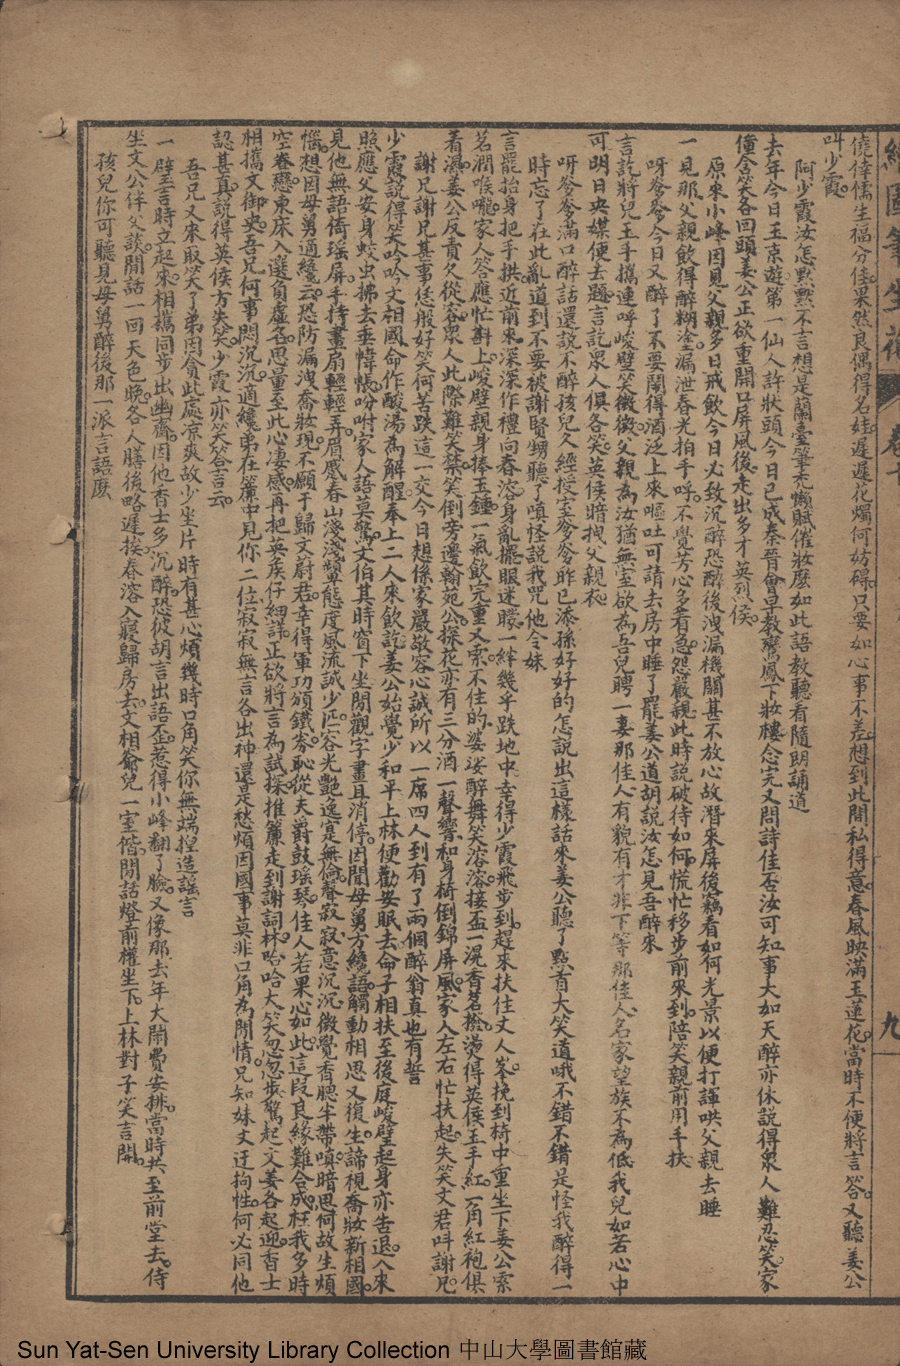 繪圖筆生花 卷十 九
僥倖儒生福分佳果然良偶得名娃遲遲花燭何妨碍只要如心事不差想到此間私得意春風映滿玉蓮花當時不便將言答又聽姜公
叫少霞
阿少霞汝怎默默不言想是蘭臺筆禿懶賦催妝麽如此語教聽看隨朗誦道
去年今日玉京遊第一仙人許狀頭今日已成秦晉會早教鸞鳳下妝樓念完又問詩佳否汝可知事大如天醉亦休說得衆人難忍笑家
僮含笑各回頭姜公正欲重開口屏風後走出多才英烈侯
原來小峰因見父親多日戒飲今日必致沉醉恐醉後洩漏機關甚不放心故潛來屏後竊看如何光景以便打諢哄父親去睡
一見那父親飲得醉糊塗漏泄春光拍手呼不覺芳心多着急怨嚴親此時説破待如何慌忙移步前來到陪笑親前用手扶
呀爹爹今日又醉了不要鬧得酒泛上來嘔吐可請去房中睡了罷姜公道胡説汝怎見吾醉來
言訖將兒玉手攜連呼峻壁笑微微父親為汝猶無室欲為吾兒聘一妻那佳人有貌有才非下等那佳人名家望族不為低我兒如若心中
可明日央媒便去題言訖衆人俱各笑英侯暗拽父親衣
呀爹爹滿口醉話還説不醉孩兒久經授室爹爹昨已添孫好好的怎説出這樣話來姜公聽了點首大笑道哦不錯不錯是怪我醉得一
時忘了在此亂道到不要被謝賢甥聽了嗔怪説我咒他令妹
言罷抬身把手拱近前來深深作禮向春溶身亂擺眼迷矇一絆幾乎跌地中幸得少霞飛步到趕來扶住丈人峯挽到椅中重坐下姜公索
茗潤喉嚨家人答應忙斟上峻壁親身捧玉鍾一氣飲完重又索不住的婆娑醉舞笑溶溶接盃一滉香茗撥燙得英侯玉手紅一角紅袍俱
着濕姜公反責欠從容衆人此際難笑禁笑倒旁邊翰苑公探花亦有三分酒一聲響和身椅倒錦屏風家人左右忙扶起失笑文君叫謝兄
謝兄謝兄甚事恁般好笑何苦跌這一交今日想係家嚴敬客心誠所以一席四人到有了兩個醉翁真也有誓
少霞說得笑吟吟丈相國命作酸湯為解酲奉上二人來飲訖姜公始覺少和平上林便勸安眠去命子相扶至後庭峻壁起身亦告退入來
照應父安身蚊虫拂去垂幃悵吩咐家人語莫驚文伯其時窗下坐閒觀字畫且消停因聞母舅方纔語觸動相思又復生諦視喬妝新相國
見他無語倚瑶屏手持畫扇輕輕弄眉蹙春山淺淺顰態度風流誠少匹容光艷逸寔無倫聲寂寂意沉沉微覺香腮半帶嗔暗思何故生煩
惱想因母舅適纔云恐防漏洩喬妝現不願于歸文蔚君幸得軍功頒鐵券恥從夫爵鼓瑶琴佳人若果心如此這段良緣難合成枉我多時
空眷戀東床入選負虛名思量至此心凄感再把英侯仔細詳正欲將言為試探推簾走到謝詞林哈哈大笑忽忽步驚起文姜各起迎香士
相攜又御央吾兄何事悶沉沉適纔弟在簾中見你二位寂寂無言各出神還是愁煩因國事莫非口角為閒情兄知妹丈迂拘性何必同他
認甚真說得英侯方失笑少霞亦笑答言云
吾兄又來取笑了弟因貪此處凉爽故少坐片時有甚心煩幾時口角笑你無端揑造謡言
一壁言時立起來相攜同步出幽齋因他香士多沉醉恐彼胡言出語歪惹得小峰翻了臉又像那去年大鬧費安排當時共至前堂去侍
坐文公伴父談閒話一回天色晚各人膳後略遲挨春溶入寢歸房去文相爺兒一室偕閒話燈前權坐下上林對子笑言開
孩兒你可聽見母舅醉後那一派言語麽
Sun Yat-Sen University Library Collection 中山大學圖書館藏